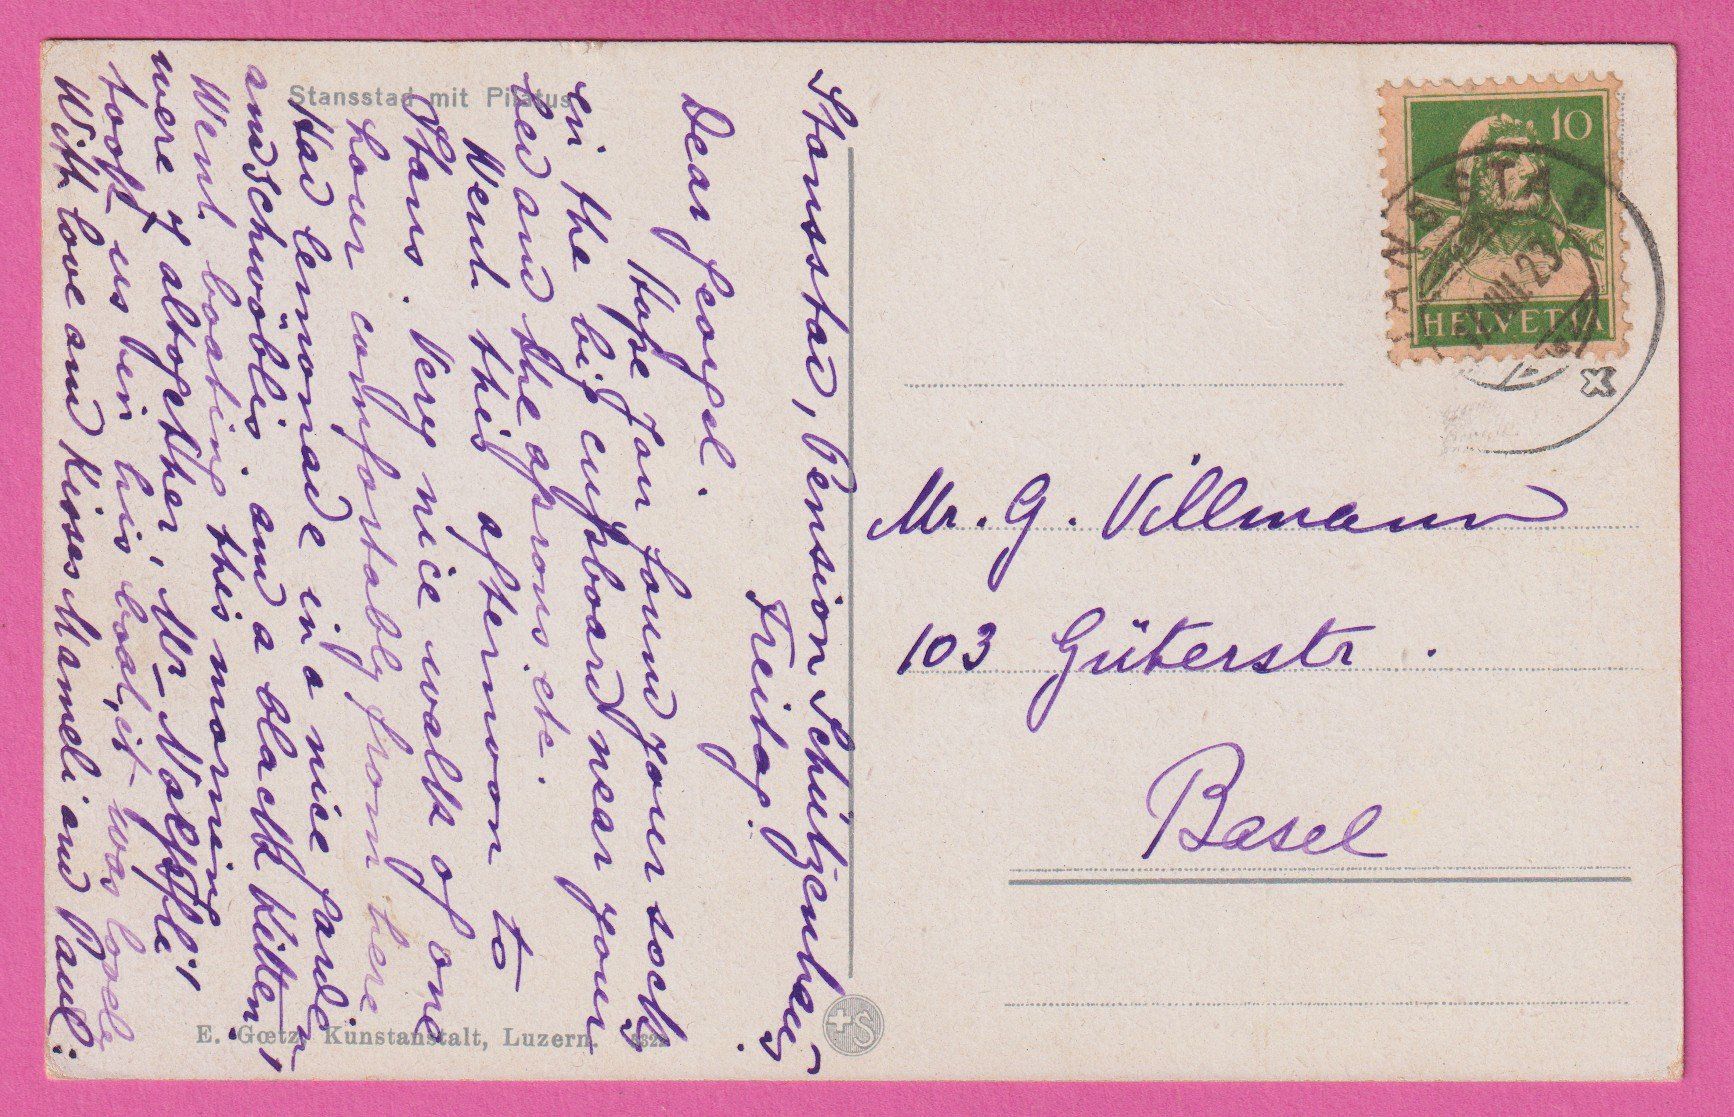 Stansstad mit Pilatus
Stansstad, Pension Schützenhaus
Freitag.
Dear Georgel.
Hope you found your socks
in the big cupboard near your
bed and the aprons etc.
Went this afternoon to
Stans. Very nice walk of one
hour comfortably from here
Had lemonade in a nice garden
and Schwöblis. and a black kitten!
Went boating this morning
were 7 altogether, Mr.
took us bin his boat, it was lovely
With love and Kisses Mameli and Pauli.
E. Gœtz, Kunstanstalt, Luzern.
S
10
HELVETIA
VIII. 23
Mr. G. Villmann
103 Güterstr.
Basel